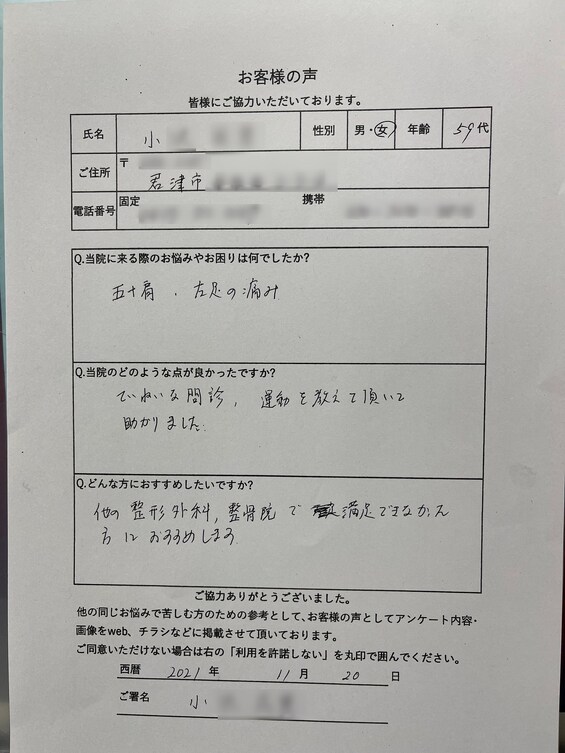 お客様の声
皆様にご協力いただいております。
氏名 小 性別 男・女 年齢 59代
ご住所 〒
君津市
電話番号 固定 携帯
Q.当院に来る際のお悩みやお困りは何でしたか?
五十肩、左足の痛み
Q.当院のどのような点が良かったですか?
ていねいな問診、運動を教えて頂いて
助かりました。
Q.どんな方におすすめしたいですか?
他の整形外科,整骨院で満足できなかった
方におすすめします
ご協力ありがとうございました。
他の同じお悩みで苦しむ方のための参考として、お客様の声としてアンケート内容・
画像をweb、チラシなどに掲載させて頂いております。
ご同意いただけない場合は右の「利用を許諾しない」を丸印で囲んでください。
西暦 2021 年 11 月 20 日
ご署名 小